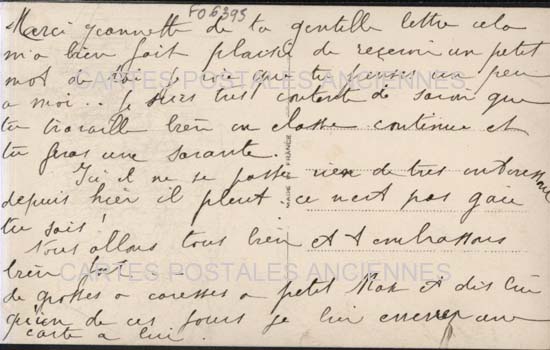 FO6395
Merci jeannette de ta gentille lettre cela
m'a bien fait plaisir de reçevoir un petit
mot de toi je vois que tu penses un peu
a moi.. je suis tres contente de savoir que
CARTES POSTALES ANCIENNES
tu travaille bien en classe continue et
tu feras une savante.
Ici il ne se passe rien de tres interessant
depuis hier il pleut ce n'est pas gaie
tu sais!
MADE IN FRANCE
Nous allons tous bien et t'embrassons
bien fort -
CARTES POSTALES ANCIENNES
de grosses caresses a petit et dis lui
qu'un de ces jours je lui une
carte a lui.